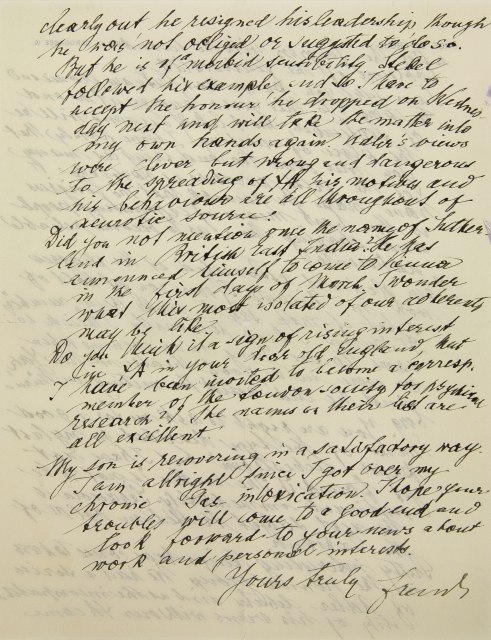 clearly out he resigned his leadership though
he was not obliged or suggested to do so.
But he is of morbid sensitivity Stekel
followed his example and so I have to
accept the honour he dropped on Wednes
day next and will take the matter into
my own hands again. Adler's views
were clever but wrong and dangerous
to the spreading of ΨA, his motives and
his behaviour are all throughout of
neurotic source.
Did you not mention once the name of Suther
land in British East India? He has
announced himself to come to Vienna
in the first days of March, I wonder
what this most isolated of our adherents
may be like
Do you think it a sign of rising interest
in ΨA in your dear old England that
I have been invited to become a corresp.
member of the London society for psychical
research? The names on their list are
all excellent.
My son is recovering in a satisfactory way.
I am allright since I got over my
chronic Gas intoxication. I hope your
troubles will come to a good end and
look forward to your news about
work and personal interests.
Yours truly Freud